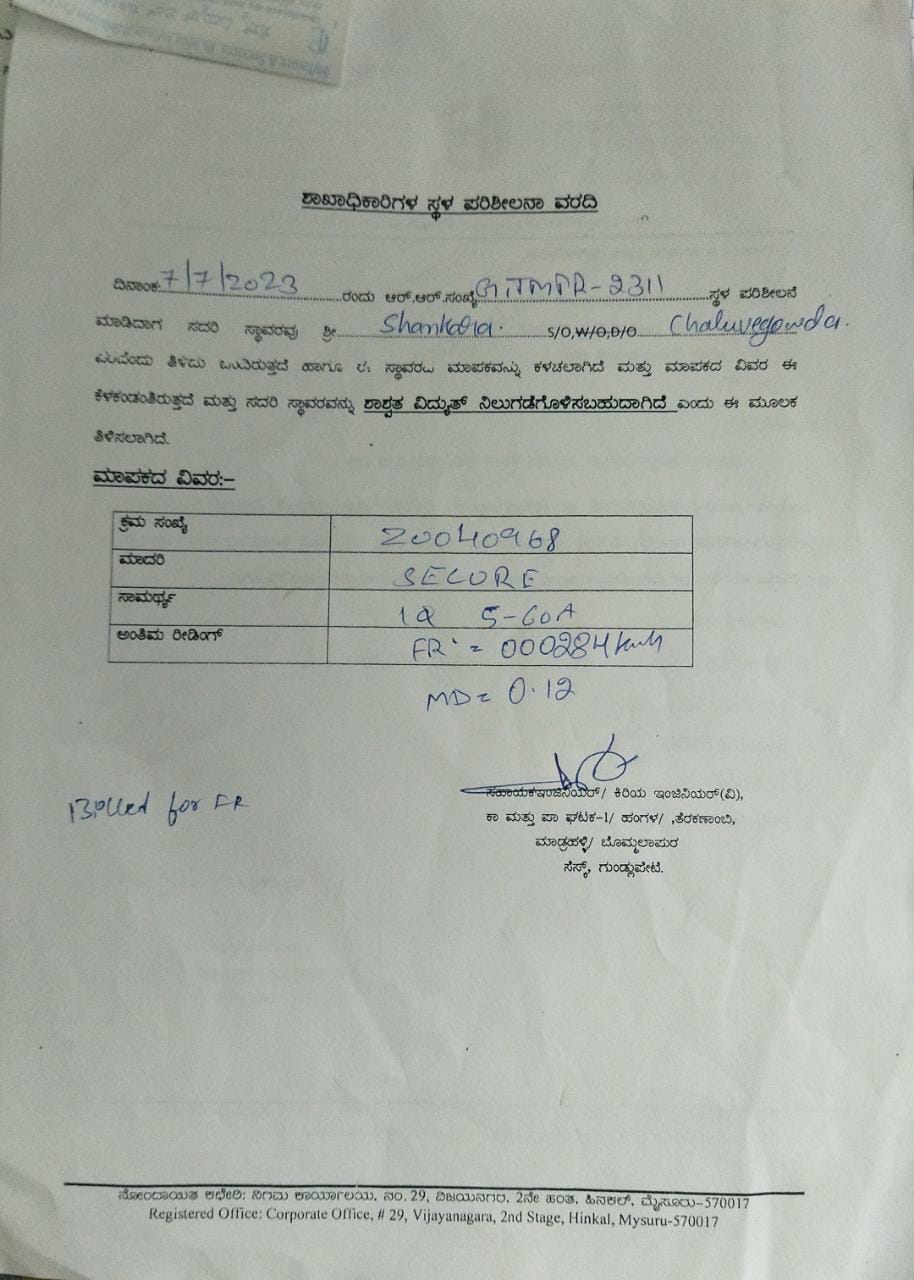 ಶಾಖಾಧಿಕಾರಿಗಳ ಸ್ಥಳ ಪರಿಶೀಲನಾ ವರದಿ
ದಿನಾಂಕ:7/7/2023 ರಂದು ಆರ್.ಆರ್.ಸಂಖ್ಯೆ -2311 ಸ್ಥಳ ಪರಿಶೀಲನೆ
ಮಾಡಿದಾಗ ಸದರಿ ಸ್ಥಾವರವು ಶ್ರೀ Shankara. S/O,W/O,D/O Chaluvegowda.
ತಿಳಿದು ಹಾಗೂ ಮಾಪಕವನ್ನು ಕಳಚಲಾಗಿದೆ ಮತ್ತು ಮಾಪಕದ ವಿವರ ಈ
ಕೆಳಕಂಡಂತಿರುತ್ತದೆ ಮತ್ತು ಸದರಿ ಸ್ಥಾವರವನ್ನು ಶಾಶ್ವತ ವಿದ್ಯುತ್ ನಿಲುಗಡೆಗೊಳಿಸಬಹುದಾಗಿದೆ ಎಂದು ಈ ಮೂಲಕ
ತಿಳಿಸಲಾಗಿದೆ.
ಮಾಪಕದ ವಿವರ:-
ಕ್ರಮ ಸಂಖ್ಯೆ 20040968
ಮಾದರಿ SECURE
ಸಾಮರ್ಥ್ಯ 5-60A
ಅಂತಿಮ ರೀಡಿಂಗ್ FR = 000284 kwh
MD = 0.12
Billed for FR
ಸಹಾಯಕಇಂಜಿನಿಯರ್/ ಕಿರಿಯ ಇಂಜಿನಿಯರ್(ವಿ),
ಕಾ ಮತ್ತು ಪಾ ಘಟಕ-1/ ಹಂಗಳ/ ,ತೆರಕಣಾಂಬಿ,
ಮಾಡ್ರಹಳ್ಳಿ/ ಬೊಮ್ಮಲಾಪುರ
ಸೆಸ್ಕ್, ಗುಂಡ್ಲುಪೇಟೆ.
ನೋಂದಾಯಿತ ಕಛೇರಿ: ನಿಗಮ ಕಾರ್ಯಾಲಯ, ನಂ. 29, ವಿಜಯನಗರ, 2ನೇ ಹಂತ, ಹಿನಕಲ್, ಮೈಸೂರು-570017
Registered Office: Corporate Office, # 29, Vijayanagara, 2nd Stage, Hinkal, Mysuru-570017